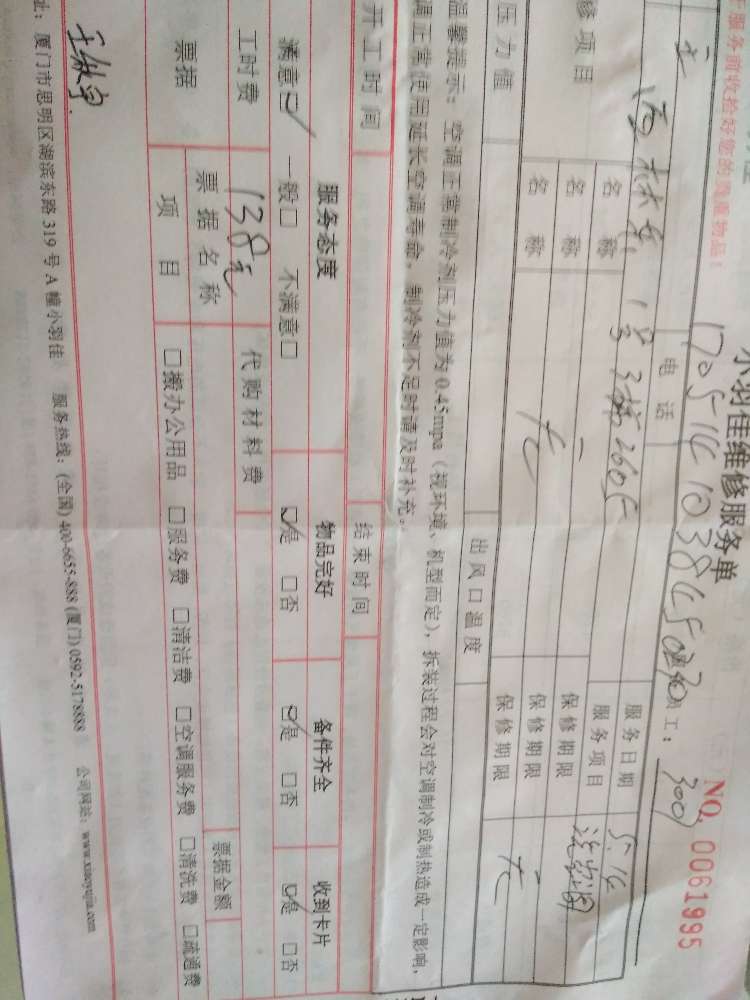 于服务前收拾好您的贵重物品!
小羽佳维修服务单
NO. 0061995
电话
工: 3009
服务日期 5.16
修项目
名称
服务项目
名称 无 保修期限
名称 保修期限 无
压力值
出风口温度
保修期限
温馨提示: 空调正常制冷剂压力值为0.45mpa (视环境、机型而定), 拆装过程会对空调制冷或制热造成一定影响,
调正常使用延长空调寿命, 制冷剂不足时请及时补充。
开工时间 结束时间
服务态度 物品完好 备件齐全 收到卡片
满意☑ 一般□ 不满意□ ☑是 □否 ☑是 □否 ☑是 □否
工时费 138元 代购材料费
票据 票据名称 票据金额
项目 □搬办公用品 □服务费 □清洁费 □空调服务费 □清洗费 □疏通费
址: 厦门市思明区湖滨东路319号A幢小羽佳 服务热线: (全国) 400-6655-888 (厦门) 0592-5178888 公司网站: www.xiaoyujia.com